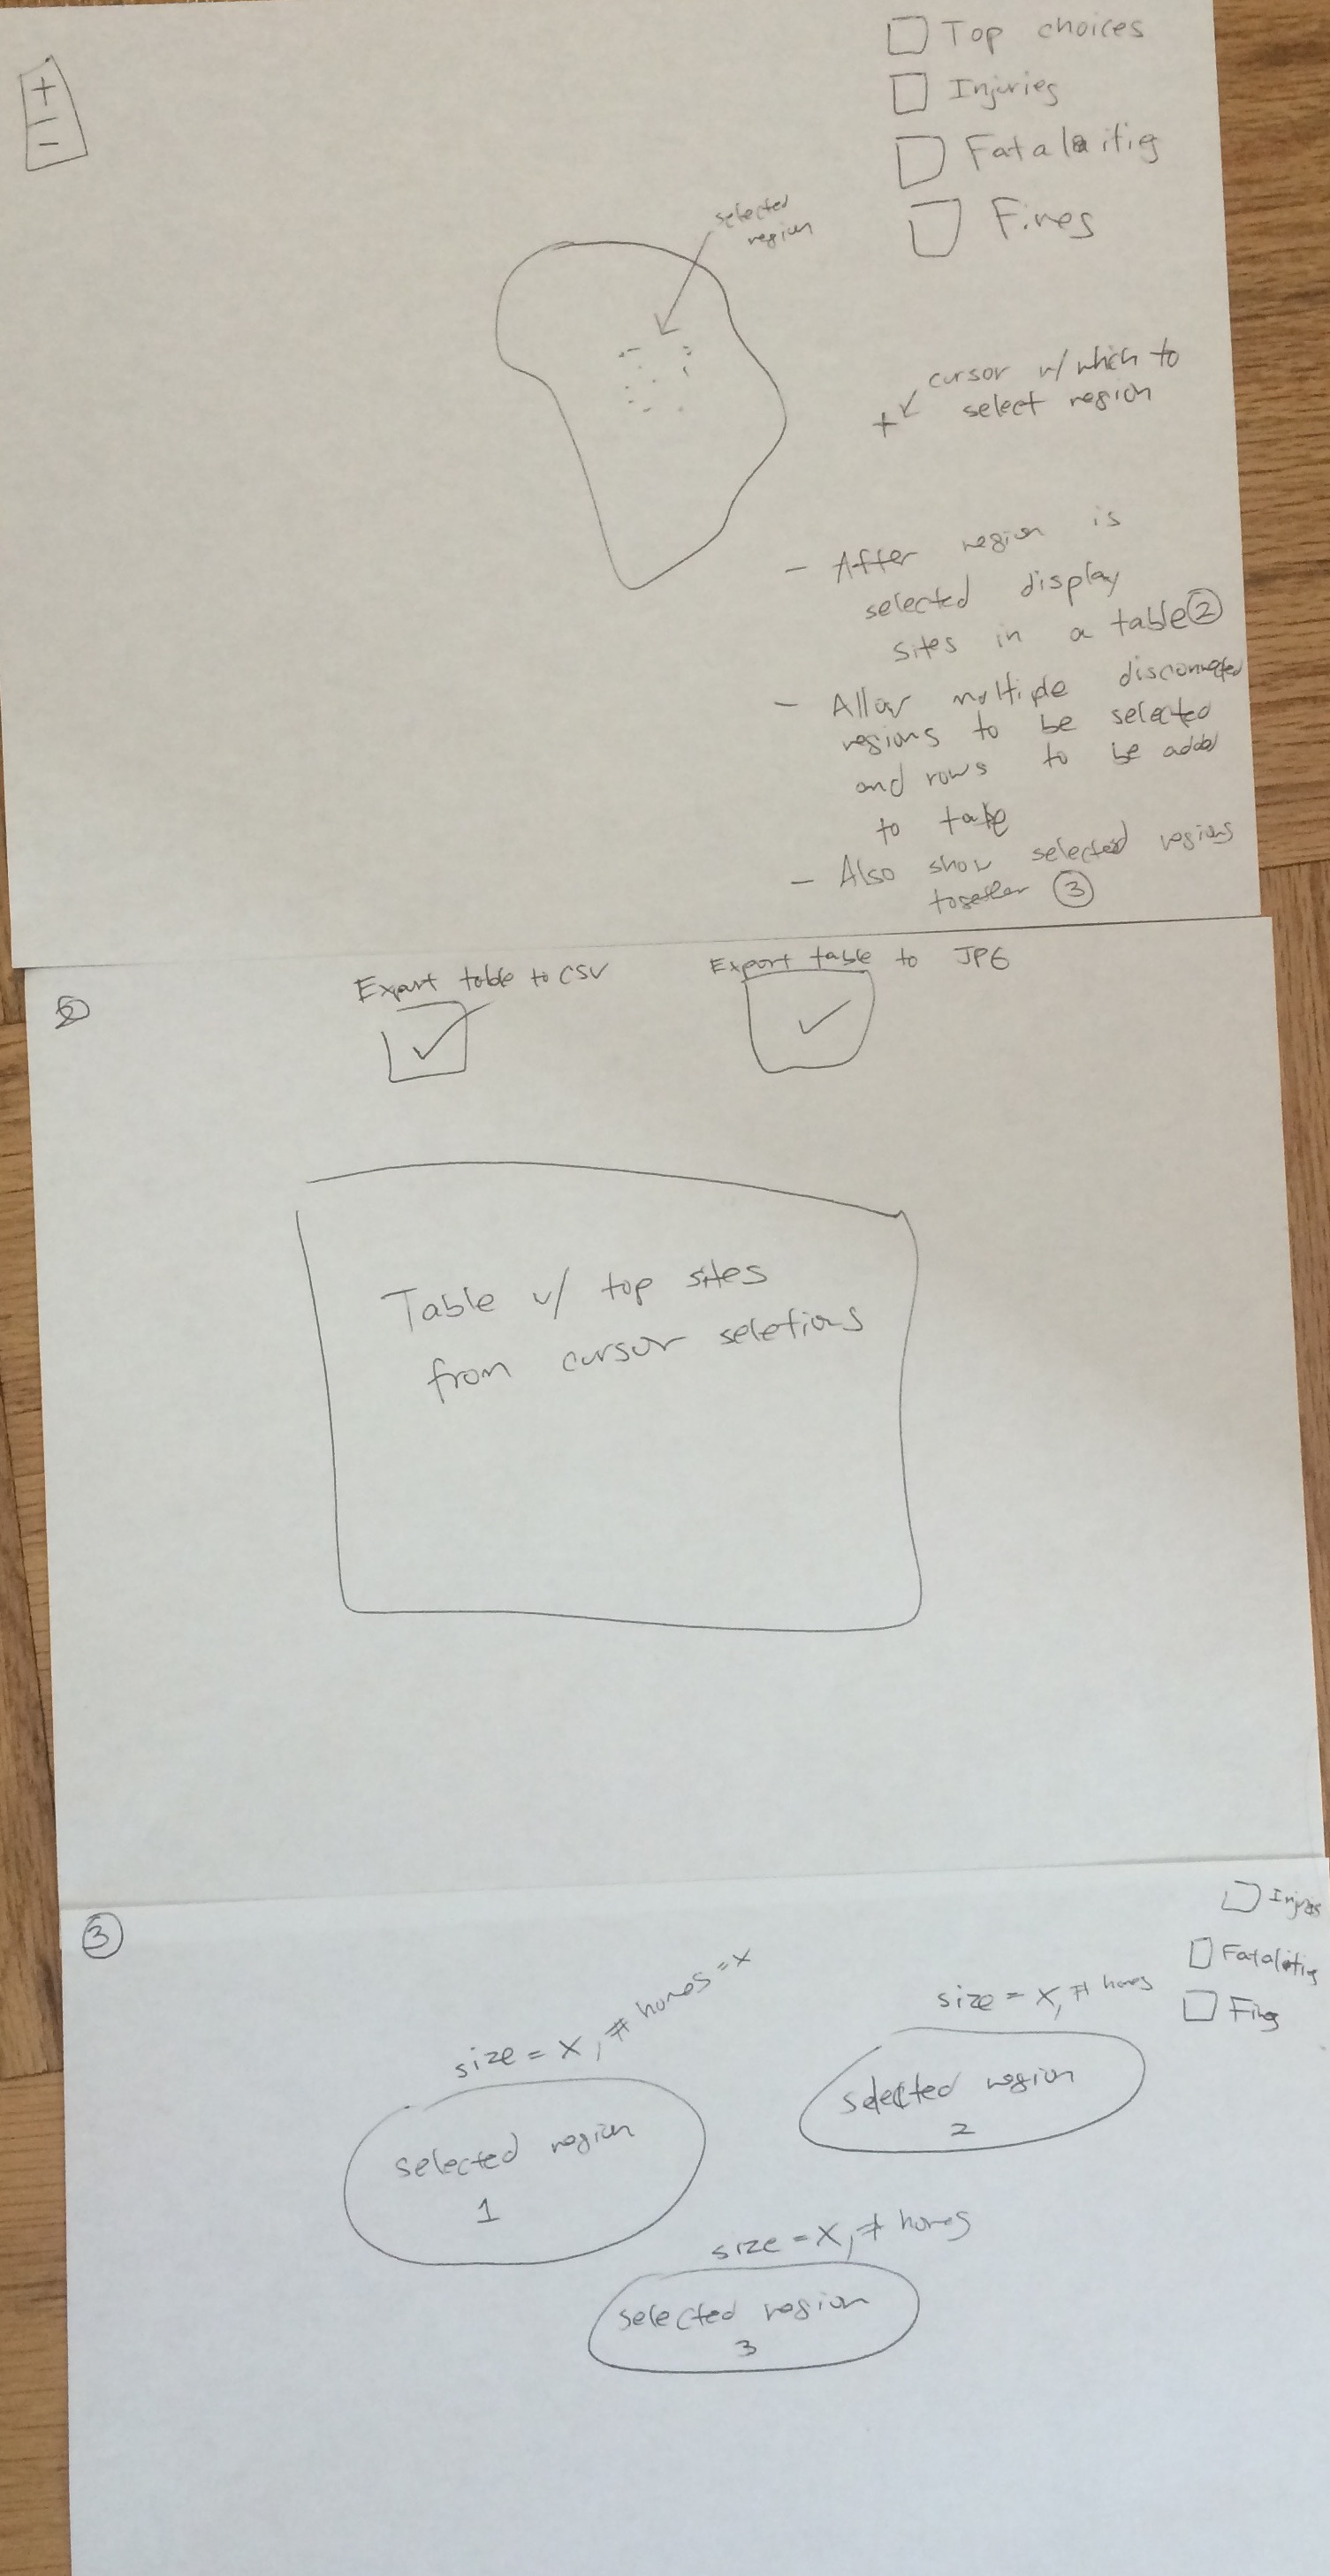 +
-
Top choices
Injuries
Fatalaities
Fires
selected
region
cursor w/ which to
select region
+
- After region is
selected display
sites in a table ②
- Allow multiple disconnected
regions to be selected
and rows to be added
to table
- Also show selected regions
together ③
②
Export table to CSV
Export table to JPG
Table w/ top sites
from cursor seletions
③
Injuries
Fatalities
Fires
size = x, # homes = x
selected region
1
size = x, # homes
selected region
2
size = x, # homes
selected region
3